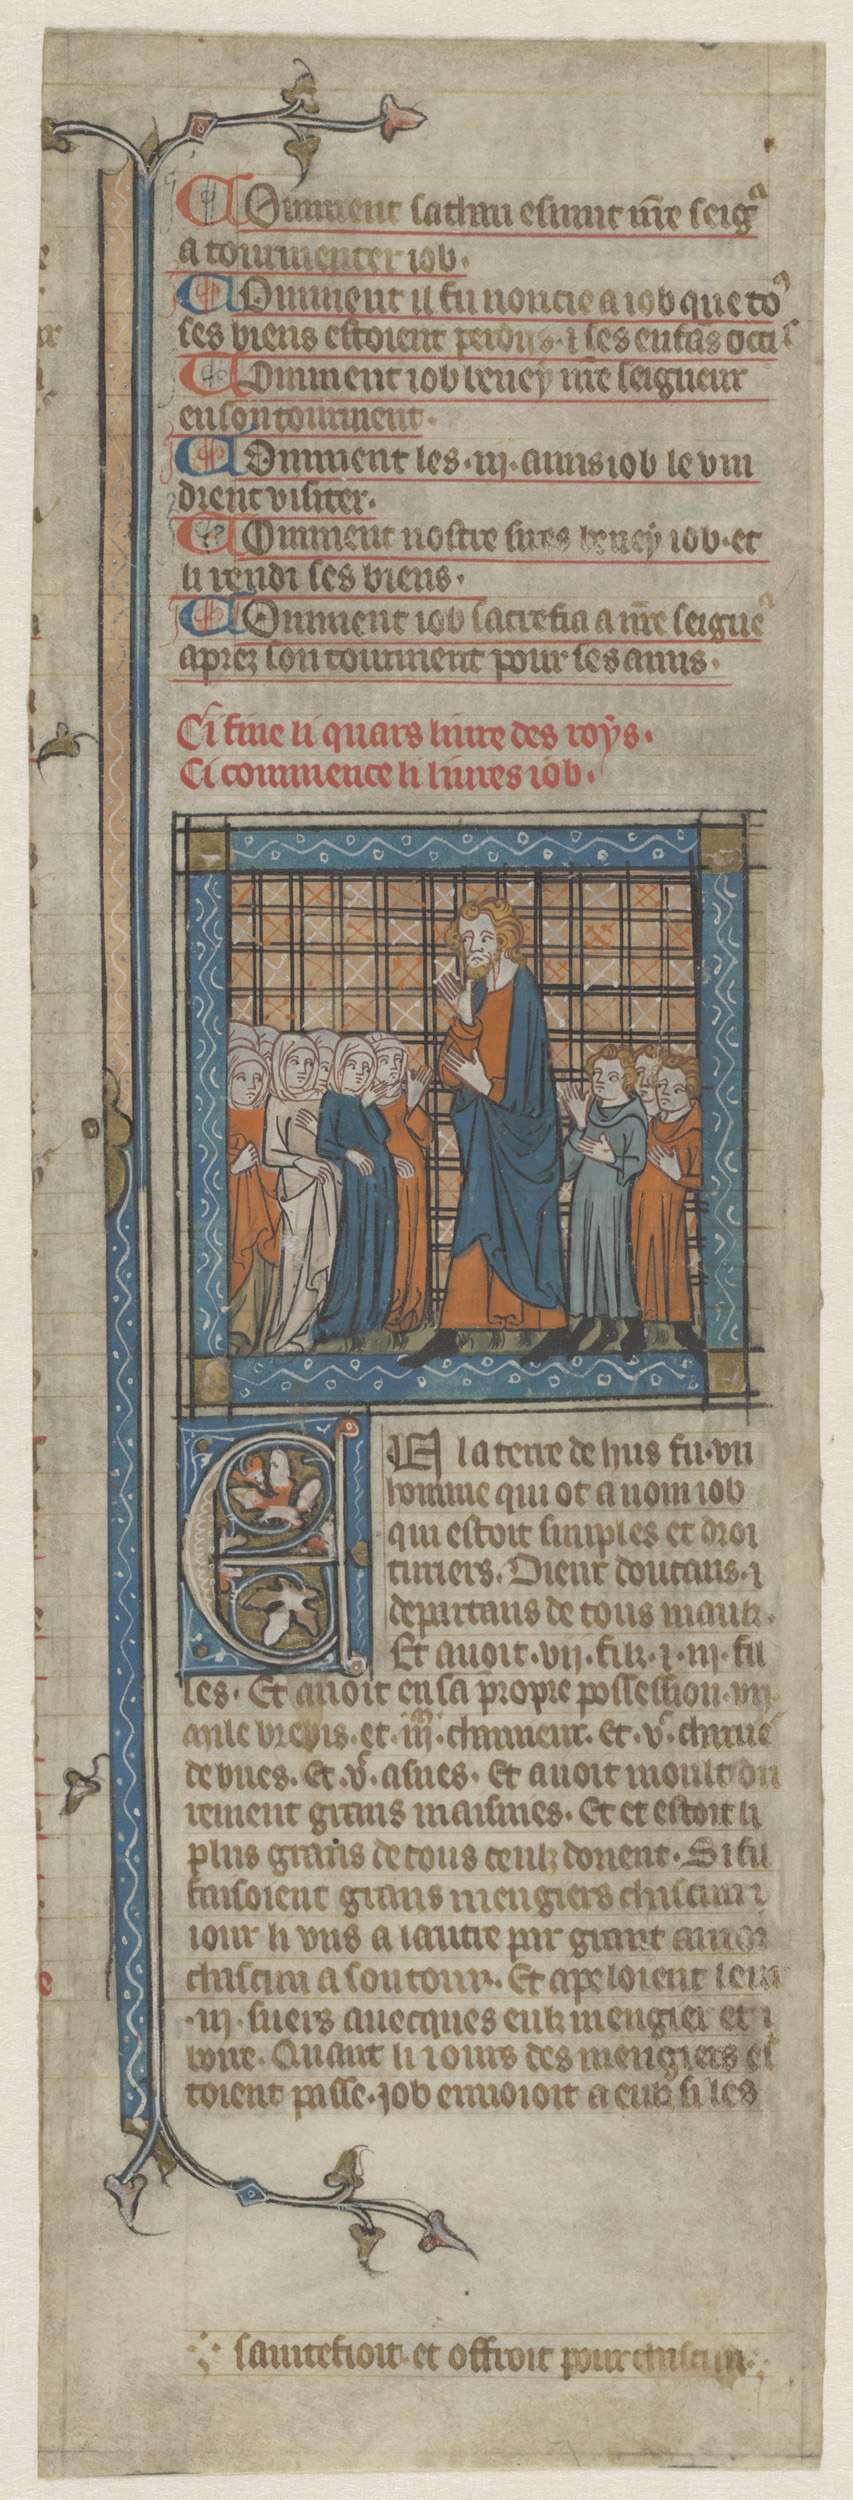 Comment sathan esmut nr̃e seigr
a tourmenter iob.
Comment il fu noncie a iob que to9
ses biens estoient perdus. ⁊ ses enfãs occis
Comment iob beney nr̃e seigneur
en son tourment.
Comment les .iij. amis iob le vin
drent visiter.
Comment nostre sires beney iob. et
li rendi ses biens.
Comment iob sacrefia a nr̃e seigner
aprez son tourment pour ses amis.
Ci fine li quars liure des roys.
Ci commence li liures iob.
EN la terre de hus fu .vn
homme qui ot a nom iob
qui estoit simples et droi
turiers. Dieu doutans. ⁊
departans de tous maulz.
Et auoit .vij. filz. ⁊ .iij. fil
les. Et auoit en sa propre possession .vij.
mile brebis. et .iijm. chameux. Et .vc. charue
de bues. Et .vc. asnes. Et auoit moult
grans maisnies. Et estoit li
plus grans de tous ceulz dorient. Si fil
faisoient grans mengiers chascun
iour li vns a lautre par grant amor
chascun a son tour. Et apeloient leur
.iij. suers auecques eulz mengier et
boire. Quant li iours des mengiers es
toient passe. iob enuoioit a eulz si les
saintefioit. et offroit pour chascun.